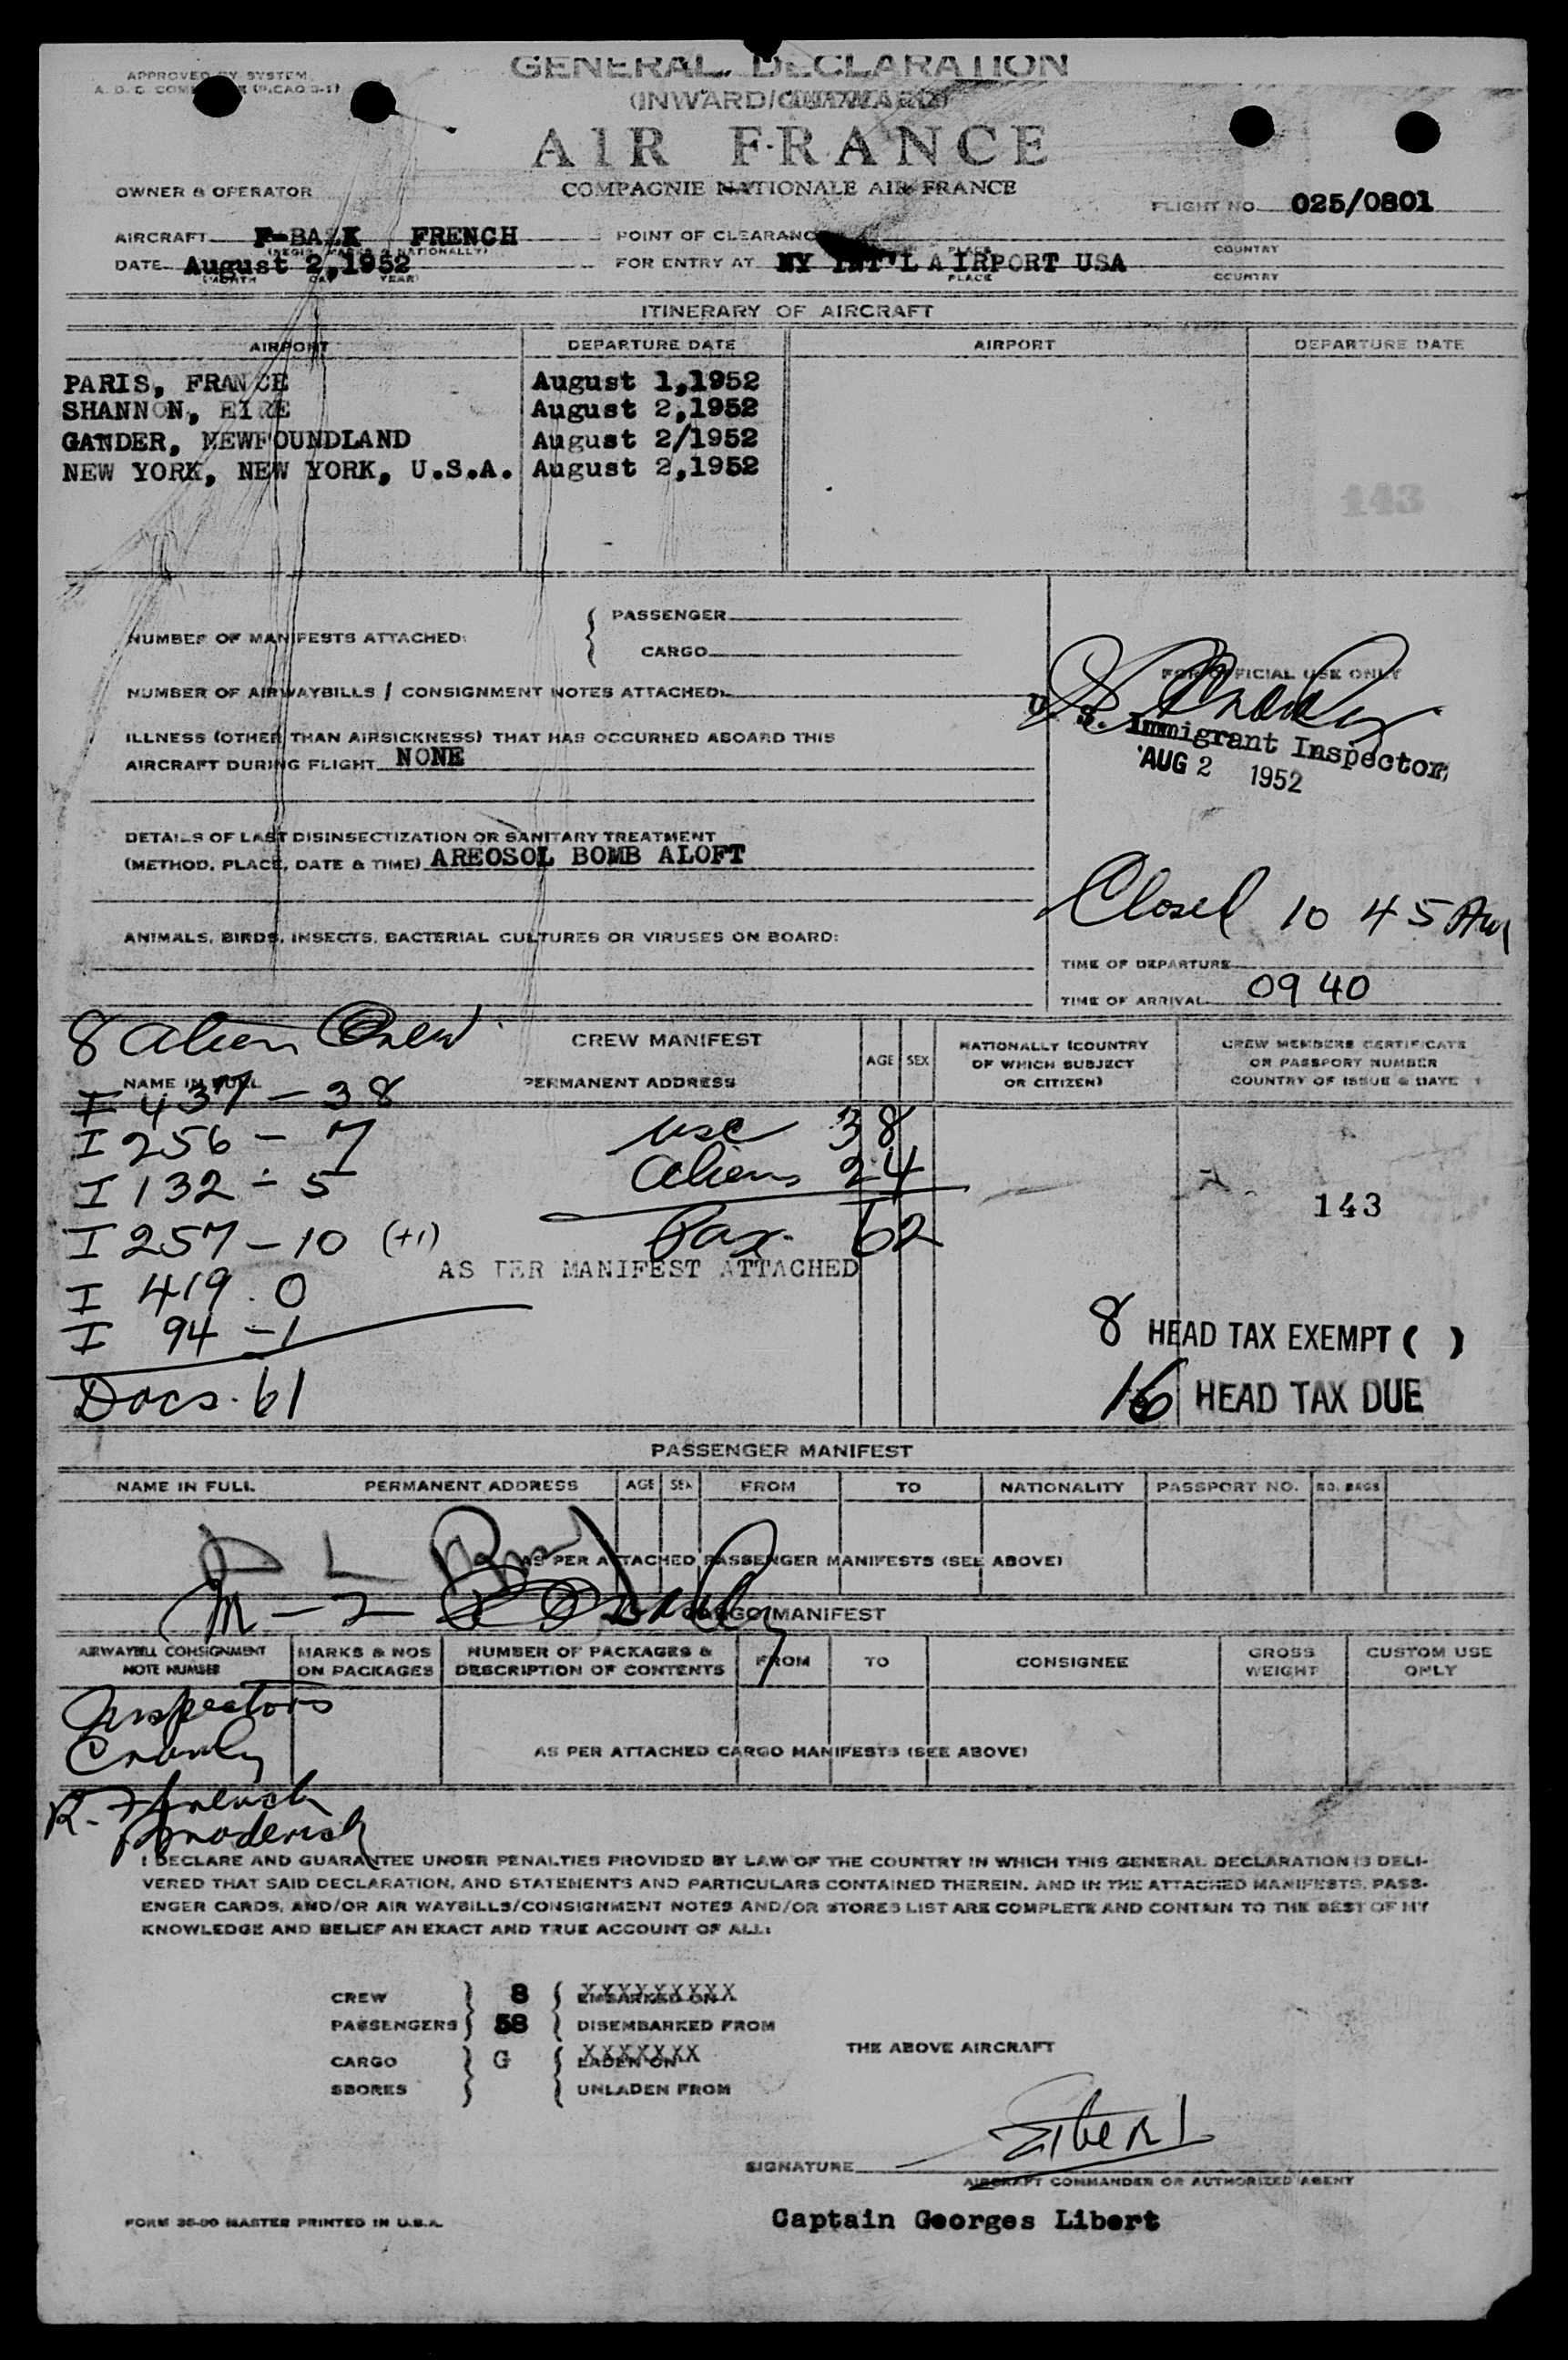 GENERAL DECLARATION
APPROVED BY SYSTEM
(INWARD/OUTWARD)
AIR FRANCE
COMPAGNIE NATIONALE AIR FRANCE
OWNER & OPERATOR
FLIGHT NO. 025/0801
AIRCRAFT FRENCH
POINT OF CLEARANCE
PLACE COUNTRY
DATE August 2,1952
(MONTH DAY YEAR)
FOR ENTRY AT NY INT'L AIRPORT USA
PLACE COUNTRY
ITINERARY OF AIRCRAFT
AIRPORT DEPARTURE DATE AIRPORT DEPARTURE DATE
PARIS, FRANCE August 1,1952
SHANNON, EIRE August 2,1952
GANDER, NEWFOUNDLAND August 2/1952
NEW YORK, NEW YORK, U.S.A. August 2,1952
143
NUMBER OF MANIFESTS ATTACHED:
PASSENGER
CARGO
FOR OFFICIAL USE ONLY
NUMBER OF AIRWAYBILLS / CONSIGNMENT NOTES ATTACHED:
U. S. Immigrant Inspector
AUG 2 1952
ILLNESS (OTHER THAN AIRSICKNESS) THAT HAS OCCURRED ABOARD THIS
AIRCRAFT DURING FLIGHT NONE
DETAILS OF LAST DISINSECTIZATION OR SANITARY TREATMENT
(METHOD, PLACE, DATE & TIME) AREOSOL BOMB ALOFT
Closed 10 45 AM
ANIMALS, BIRDS, INSECTS, BACTERIAL CULTURES OR VIRUSES ON BOARD:
TIME OF DEPARTURE
TIME OF ARRIVAL 0940
8 Alien Crew
CREW MANIFEST
NAME IN FULL PERMANENT ADDRESS AGE SEX
NATIONALLY (COUNTRY
OF WHICH SUBJECT
OR CITIZEN)
CREW MEMBERS CERTIFICATE
OR PASSPORT NUMBER
COUNTRY OF ISSUE & DATE
I 437 - 38
I 256 - 7
I 132 - 5
I 257 - 10 (+1)
I 419 . 0
I 94 - 1
Docs. 61
usc 38
Aliens 24
Pax. 62
AS PER MANIFEST ATTACHED
143
8 HEAD TAX EXEMPT ( )
16 HEAD TAX DUE
PASSENGER MANIFEST
NAME IN FULL PERMANENT ADDRESS AGE SEX FROM TO NATIONALITY PASSPORT NO. NO. BAGS
AS PER ATTACHED PASSENGER MANIFESTS (SEE ABOVE)
CARGO MANIFEST
AIRWAYBILL CONSIGNMENT
NOTE NUMBER
MARKS & NOS
ON PACKAGES
NUMBER OF PACKAGES &
DESCRIPTION OF CONTENTS
FROM TO CONSIGNEE
GROSS
WEIGHT
CUSTOM USE
ONLY
Inspectors
AS PER ATTACHED CARGO MANIFESTS (SEE ABOVE)
I DECLARE AND GUARANTEE UNDER PENALTIES PROVIDED BY LAW OF THE COUNTRY IN WHICH THIS GENERAL DECLARATION IS DELI-
VERED THAT SAID DECLARATION, AND STATEMENTS AND PARTICULARS CONTAINED THEREIN, AND IN THE ATTACHED MANIFESTS, PASS-
ENGER CARDS, AND/OR AIR WAYBILLS/CONSIGNMENT NOTES AND/OR STORES LIST ARE COMPLETE AND CONTAIN TO THE BEST OF MY
KNOWLEDGE AND BELIEF AN EXACT AND TRUE ACCOUNT OF ALL:
CREW 8 EMBARKED ON XXXXXXXXX
PASSENGERS 58 DISEMBARKED FROM
THE ABOVE AIRCRAFT
CARGO G LADEN ON XXXXXXX
SBORES UNLADEN FROM
SIGNATURE
AIRCRAFT COMMANDER OR AUTHORIZED AGENT
FORM 36-90 MASTER PRINTED IN U.S.A.
Captain Georges Libert